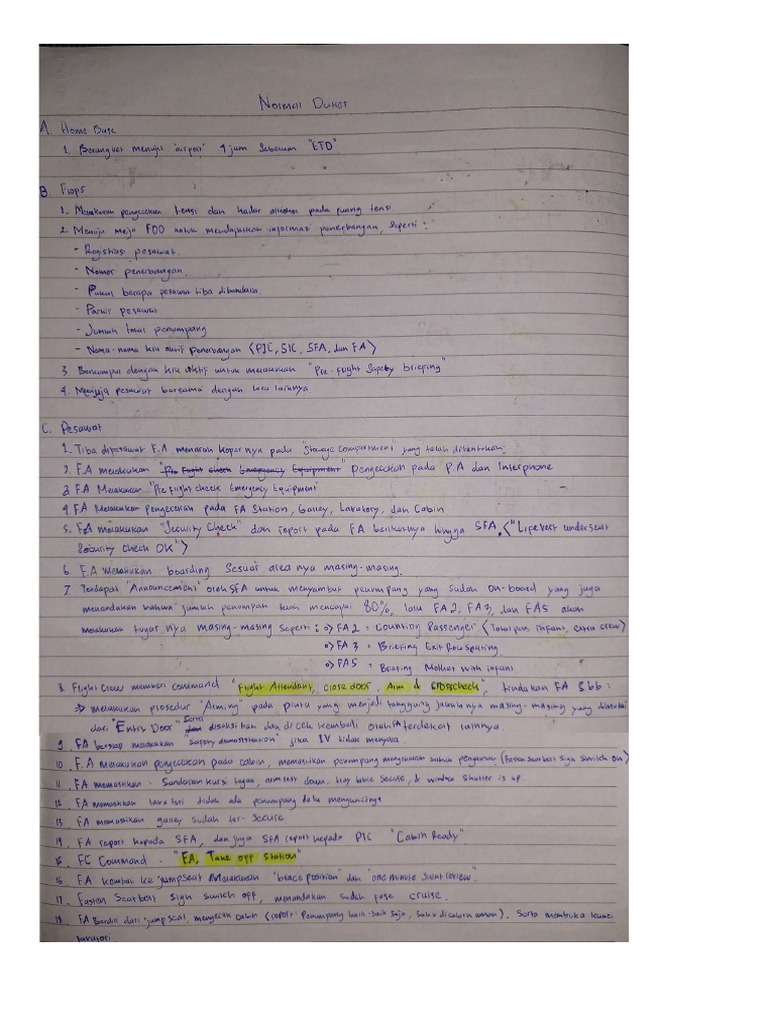 Normal Duties
A. Home Base
1. Berangkat menuju "airport" 4 jam sebelum "ETD"
B. Flops
1. Melakukan pengecekan tensi dan kadar alkohol pada ruang tensi.
2. Menuju meja FOO untuk mendapatkan informasi penerbangan, seperti :
- Registrasi pesawat.
- Nomor penerbangan.
- Pukul berapa pesawat tiba dibandara.
- Parkir pesawat
- Jumlah total penumpang
- Nama-nama kru aktif penerbangan (PIC, SIC, SFA, dan FA)
3. Berkumpul dengan kru aktif untuk melakukan "Pre-Flight Safety briefing"
4. Menuju pesawat bersama dengan kru lainnya.
C. Pesawat
1. Tiba dipesawat F.A menaruh kopernya pada "Storage Compartment" yang telah ditentukan.
2. F.A melakukan "Pre Flight Check Emergency Equipment" Pengecekan pada P.A dan Interphone
3 FA Melakukan "Pre Flight check Emergency Equipment"
4 FA Melakukan Pengecekan pada FA Station, Galley, Lavatory, dan Cabin
5. FA melakukan "Security Check" dan report pada FA berikutnya hingga SFA. ("Lifevest underseat
Security Check OK")
6. F.A melakukan boarding sesuai area nya masing-masing.
7. Terdapat "Announcement" oleh SFA untuk menyambut penumpang yang sudah on-board yang juga
menandakan bahwa jumlah penumpan telah mencapai 80%, lalu FA2, FA3, dan FA5 akan
melakukan tugas nya masing-masing seperti : o> FA 2 = Counting Passenger (Total pax, infant, extra crew)
o> FA 3 = Briefing Exit Row Seating
o> FA5 = Briefing Mother with infant
8. Flight Crew memberi command "Flight Attendant, close door, Arm & Crosscheck", tindakan FA sbb :
=> melakukan prosedur "Arming" pada pintu yang menjadi tanggung jawabnya masing-masing yang dimulai
dari "Entry Door" serta disaksikan dan di cek kembali oleh FA terdekat lainnya.
9. FA bersiap melakukan "Safety demonstration" jika IV tidak menyala.
10. F.A melakukan pengecekan pada cabin, memastikan penumpang mengenakan sabuk pengaman (Fasten Seatbelt sign switch on)
11. FA memastikan : Sandaran kursi tegak, armrest down, tray table secure, & window shutter is up.
12 FA memastikan lavatori tidak ada penumpang lalu menguncinya
13. FA memastikan galley sudah ter-secure
14. FA report kepada SFA, dan juga SFA report kepada PIC "Cabin Ready"
15 FC Command - "FA, Take off Station"
16 FA kembali ke "jumpseat Melakukan "brace position" dan "one minute silent review".
17. Fasten Seatbelt Sign switch off, menandakan sudah fase cruise.
18. FA Berdiri dari jumpseat, mengecek cabin (report : Penumpang baik-baik saja, suhu dicabin aman). Serta membuka kunci
lavatori.